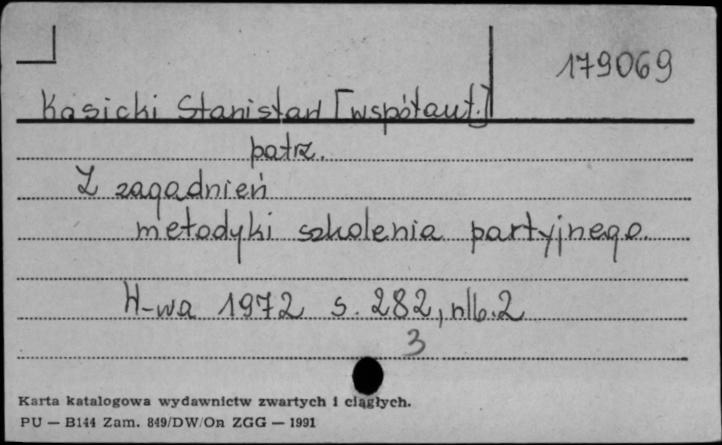 179069
Kasicki Stanisław [współaut.]
patrz.
Z zagadnień
metodyki szkolenia partyjnego.
W-wa 1972 s. 282, nlb. 2
3
Karta katalogowa wydawnictw zwartych i ciągłych.
PU — B144 Zam. 849/DW/On ZGG — 1991